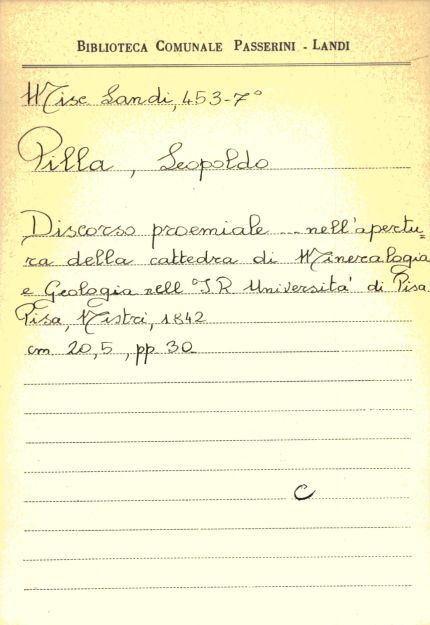 BIBLIOTECA COMUNALE PASSERINI - LANDI
Misc Landi, 453-7°
Pilla, Leopoldo
Discorso proemiale ... nell'apertu=
ra della cattedra di Mineralogia
e Geologia nell'I R Università di Pisa
Pisa, Nistri, 1842
cm 20,5, pp 30
C